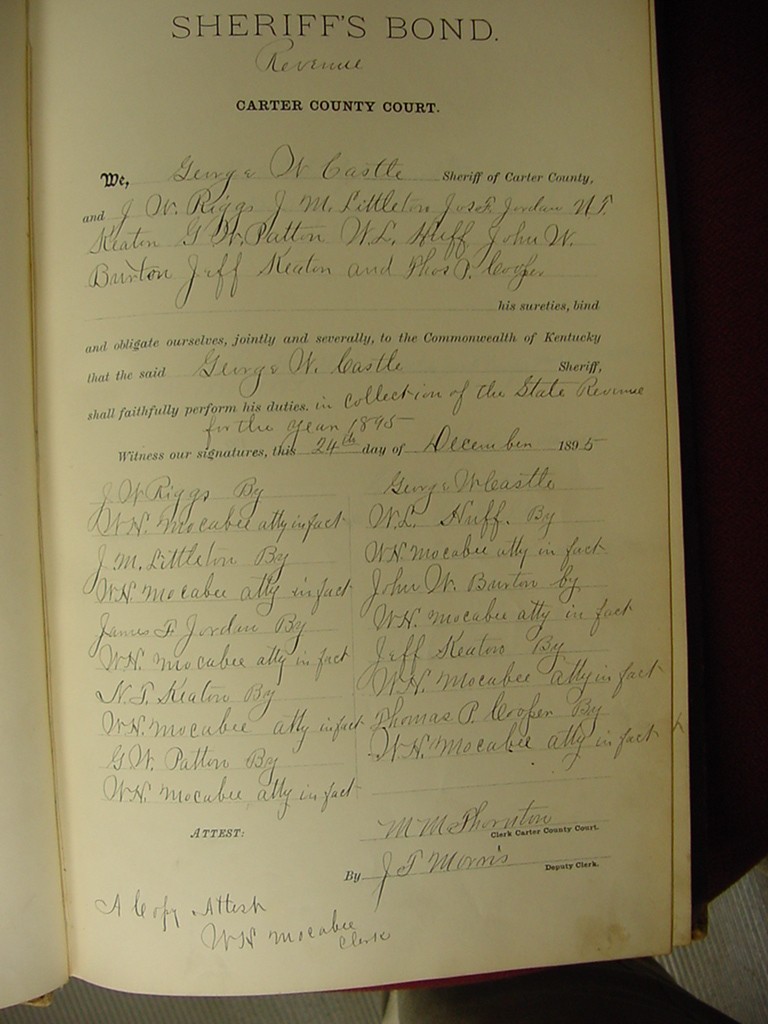 SHERIFF'S BOND.
Revenue
CARTER COUNTY COURT.
We, George W Castle Sheriff of Carter County,
and J W. Riggs J M. Littleton Jas F. Jordan N T.
Keaton G W. Patton W. L. Huff John W.
Burton Jeff Keaton and Thos P. Cooper
his sureties, bind
and obligate ourselves, jointly and severally, to the Commonwealth of Kentucky
that the said George W. Castle Sheriff,
shall faithfully perform his duties. in collection of the State Revenue
for the year 1895
Witness our signatures, this 24th day of December 1895
George W Castle
J W Riggs By
W.H. Mocabee atty in fact
J. M. Littleton By
W.H Mocabee atty in fact
James F Jordan By
W.H. Mocabee atty in fact
N. T. Keaton By
W.H. Mocabee atty in fact
G W. Patton By
W.H. Mocabee atty in fact
W.L. Huff. By
W.H Mocabee atty in fact
John W. Burton by
W.H. Mocabee atty in fact
Jeff Keaton By
W.H. Mocabee atty in fact
Thomas P. Cooper By
W.H. Mocabee atty in fact
ATTEST:
M M Thornton
Clerk Carter County Court.
By J T Morris Deputy Clerk.
A Copy Attest
W H Mocabee
Clerk